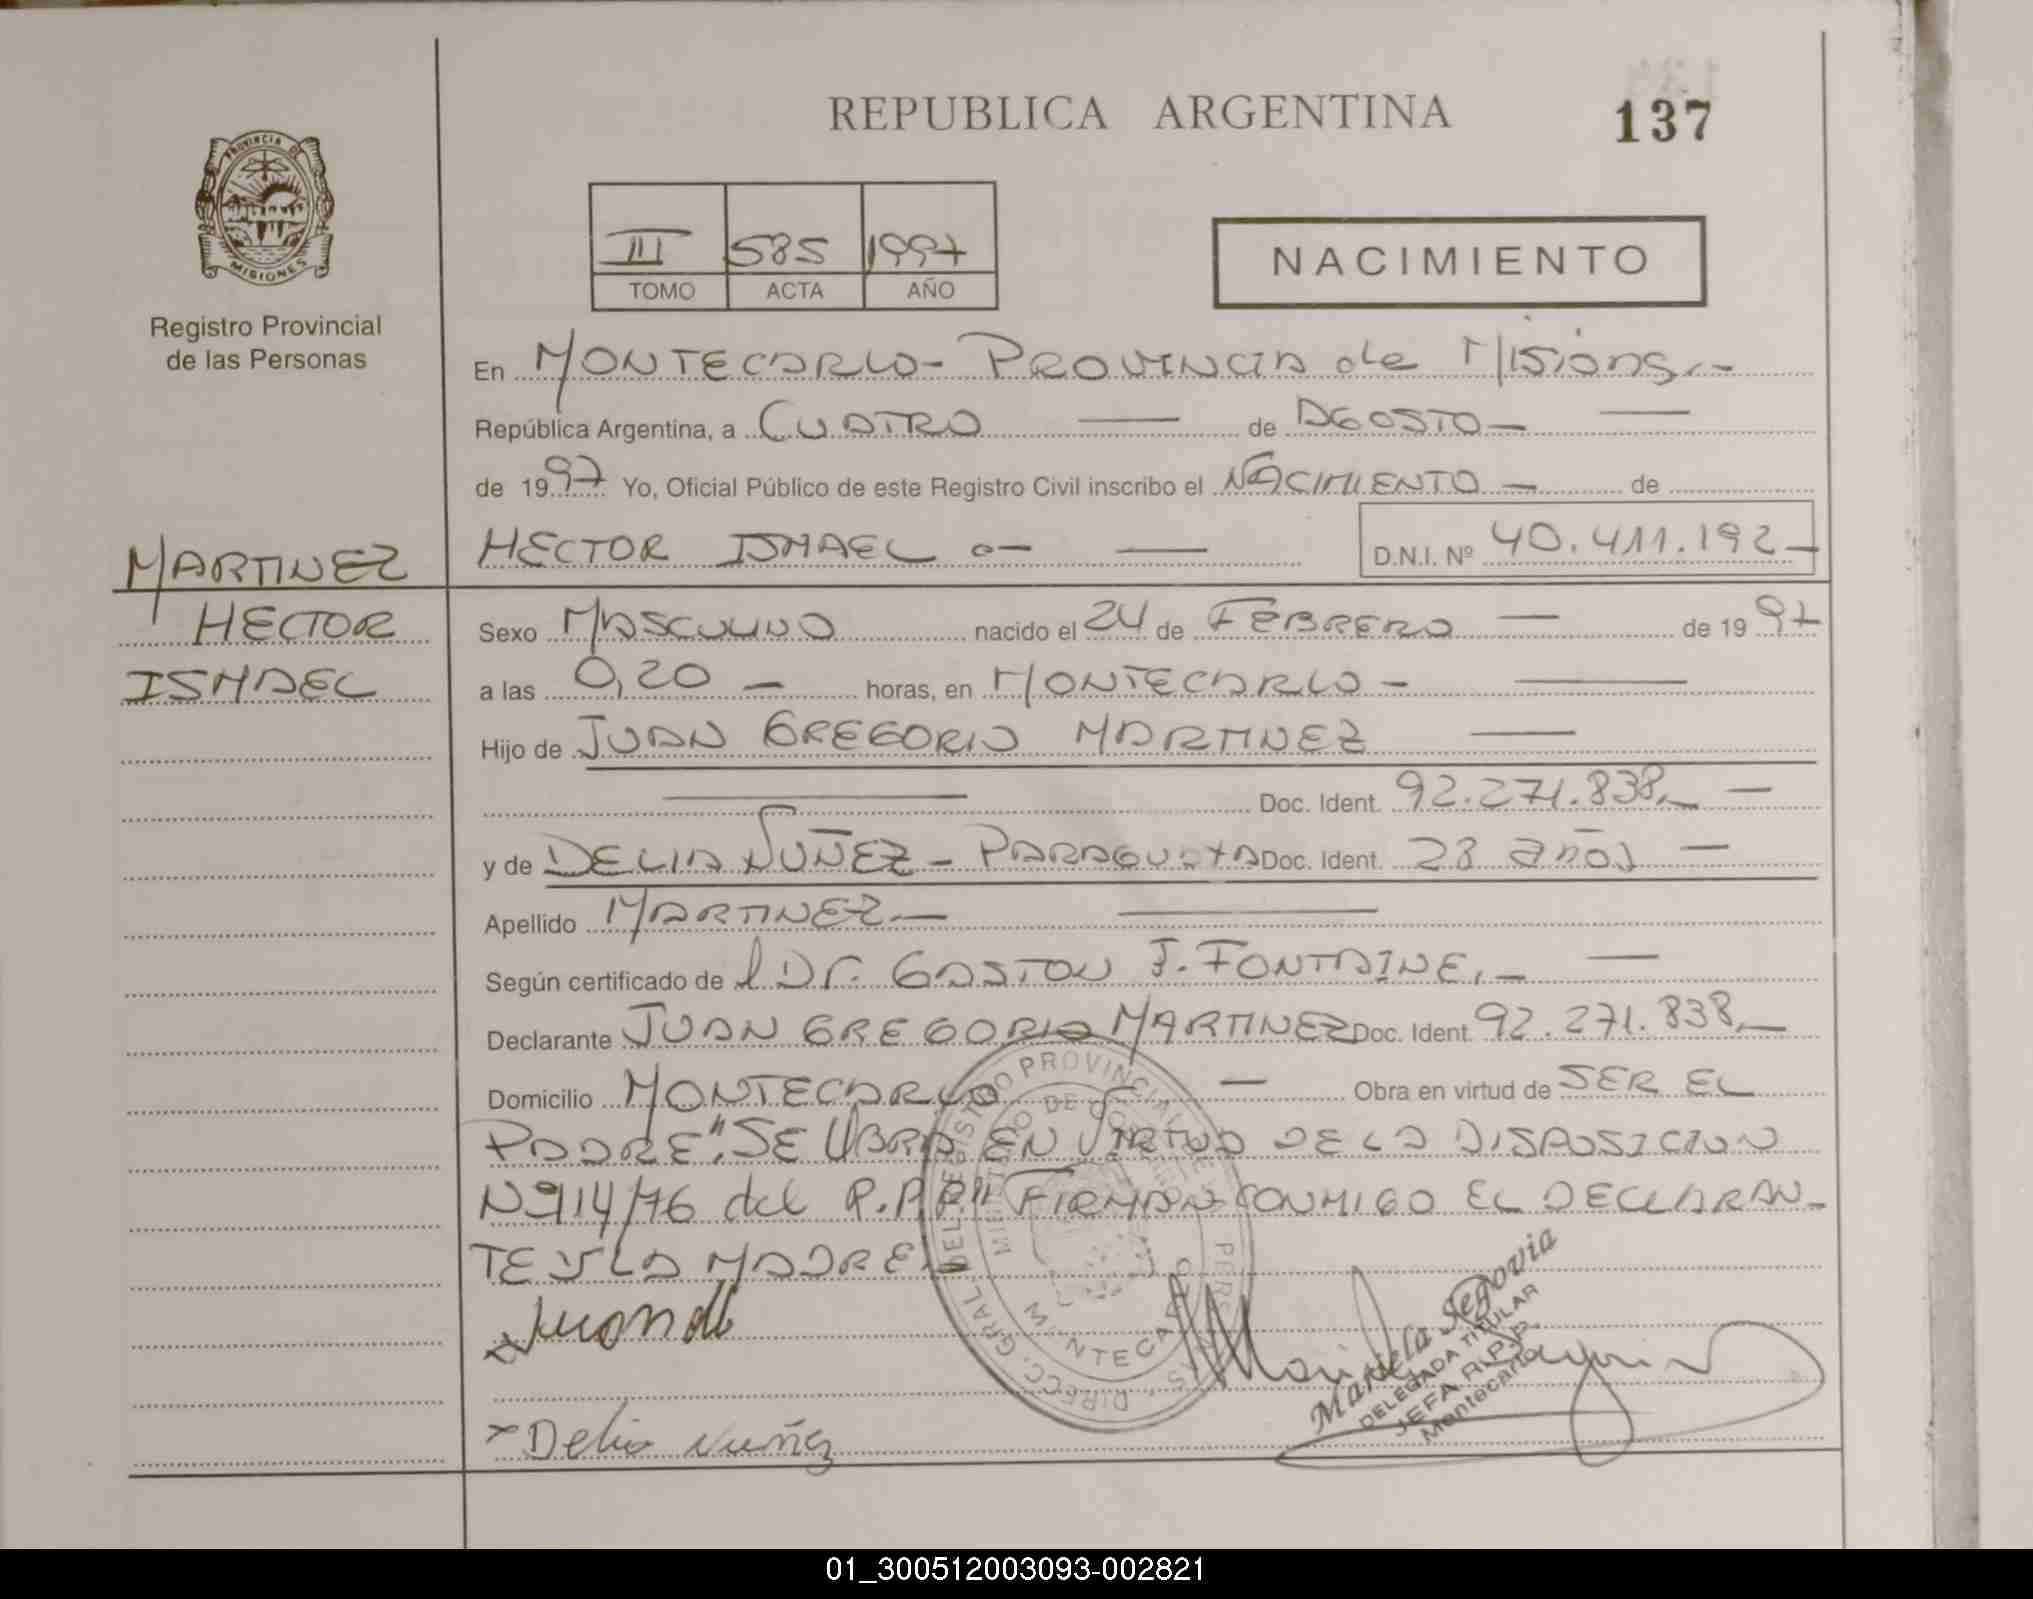 REPUBLICA ARGENTINA
137
PROVINCIA DE
MISIONES
Registro Provincial
de las Personas
III 585 1997
TOMO ACTA AÑO
NACIMIENTO
En MONTECARLO - PROVINCIA de Misions.-
República Argentina, a CUATRO — de AGOSTO —
de 1997 Yo, Oficial Público de este Registro Civil inscribo el NACIMIENTO — de
HECTOR ISMAEL — D.N.I. Nº 40.411.192 —
MARTINEZ
HECTOR
ISMAEL
Sexo MASCULINO nacido el 24 de FEBRERO — de 1997
a las 0,20 — horas, en MONTECARLO -
Hijo de JUAN GREGORIO MARTINEZ —
Doc. Ident. 92.271.838.- —
y de DELIA NUÑEZ - PARAGUAYA Doc. Ident. 28 años —
Apellido MARTINEZ.—
Según certificado de l Dr. GASTON J. FONTAINE.- —
Declarante JUAN GREGORIO MARTINEZ Doc. Ident. 92.271.838.-
Domicilio MONTECARLO — Obra en virtud de SER EL
PADRE". SE LABRA EN VIRTUD DE LA DISPOSICION
Nº 914/76 del R.P.P." FIRMAN CONMIGO EL DECLARAN-
TE Y LA MADRE
DIRECC. GRAL. DEL REGISTRO PROVINCIAL DE PERSONAS
MONTECARLO
x Delia Nuñez
Mariela Segovia
DELEGADA TITULAR
JEFA R.P.P.
Montecarlo
01_300512003093-002821